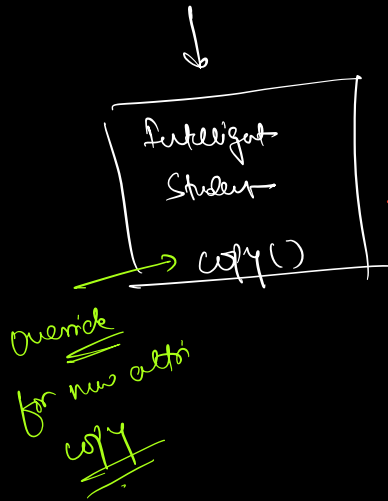 Intelligent
Student
copy()
override
for new attri
copy